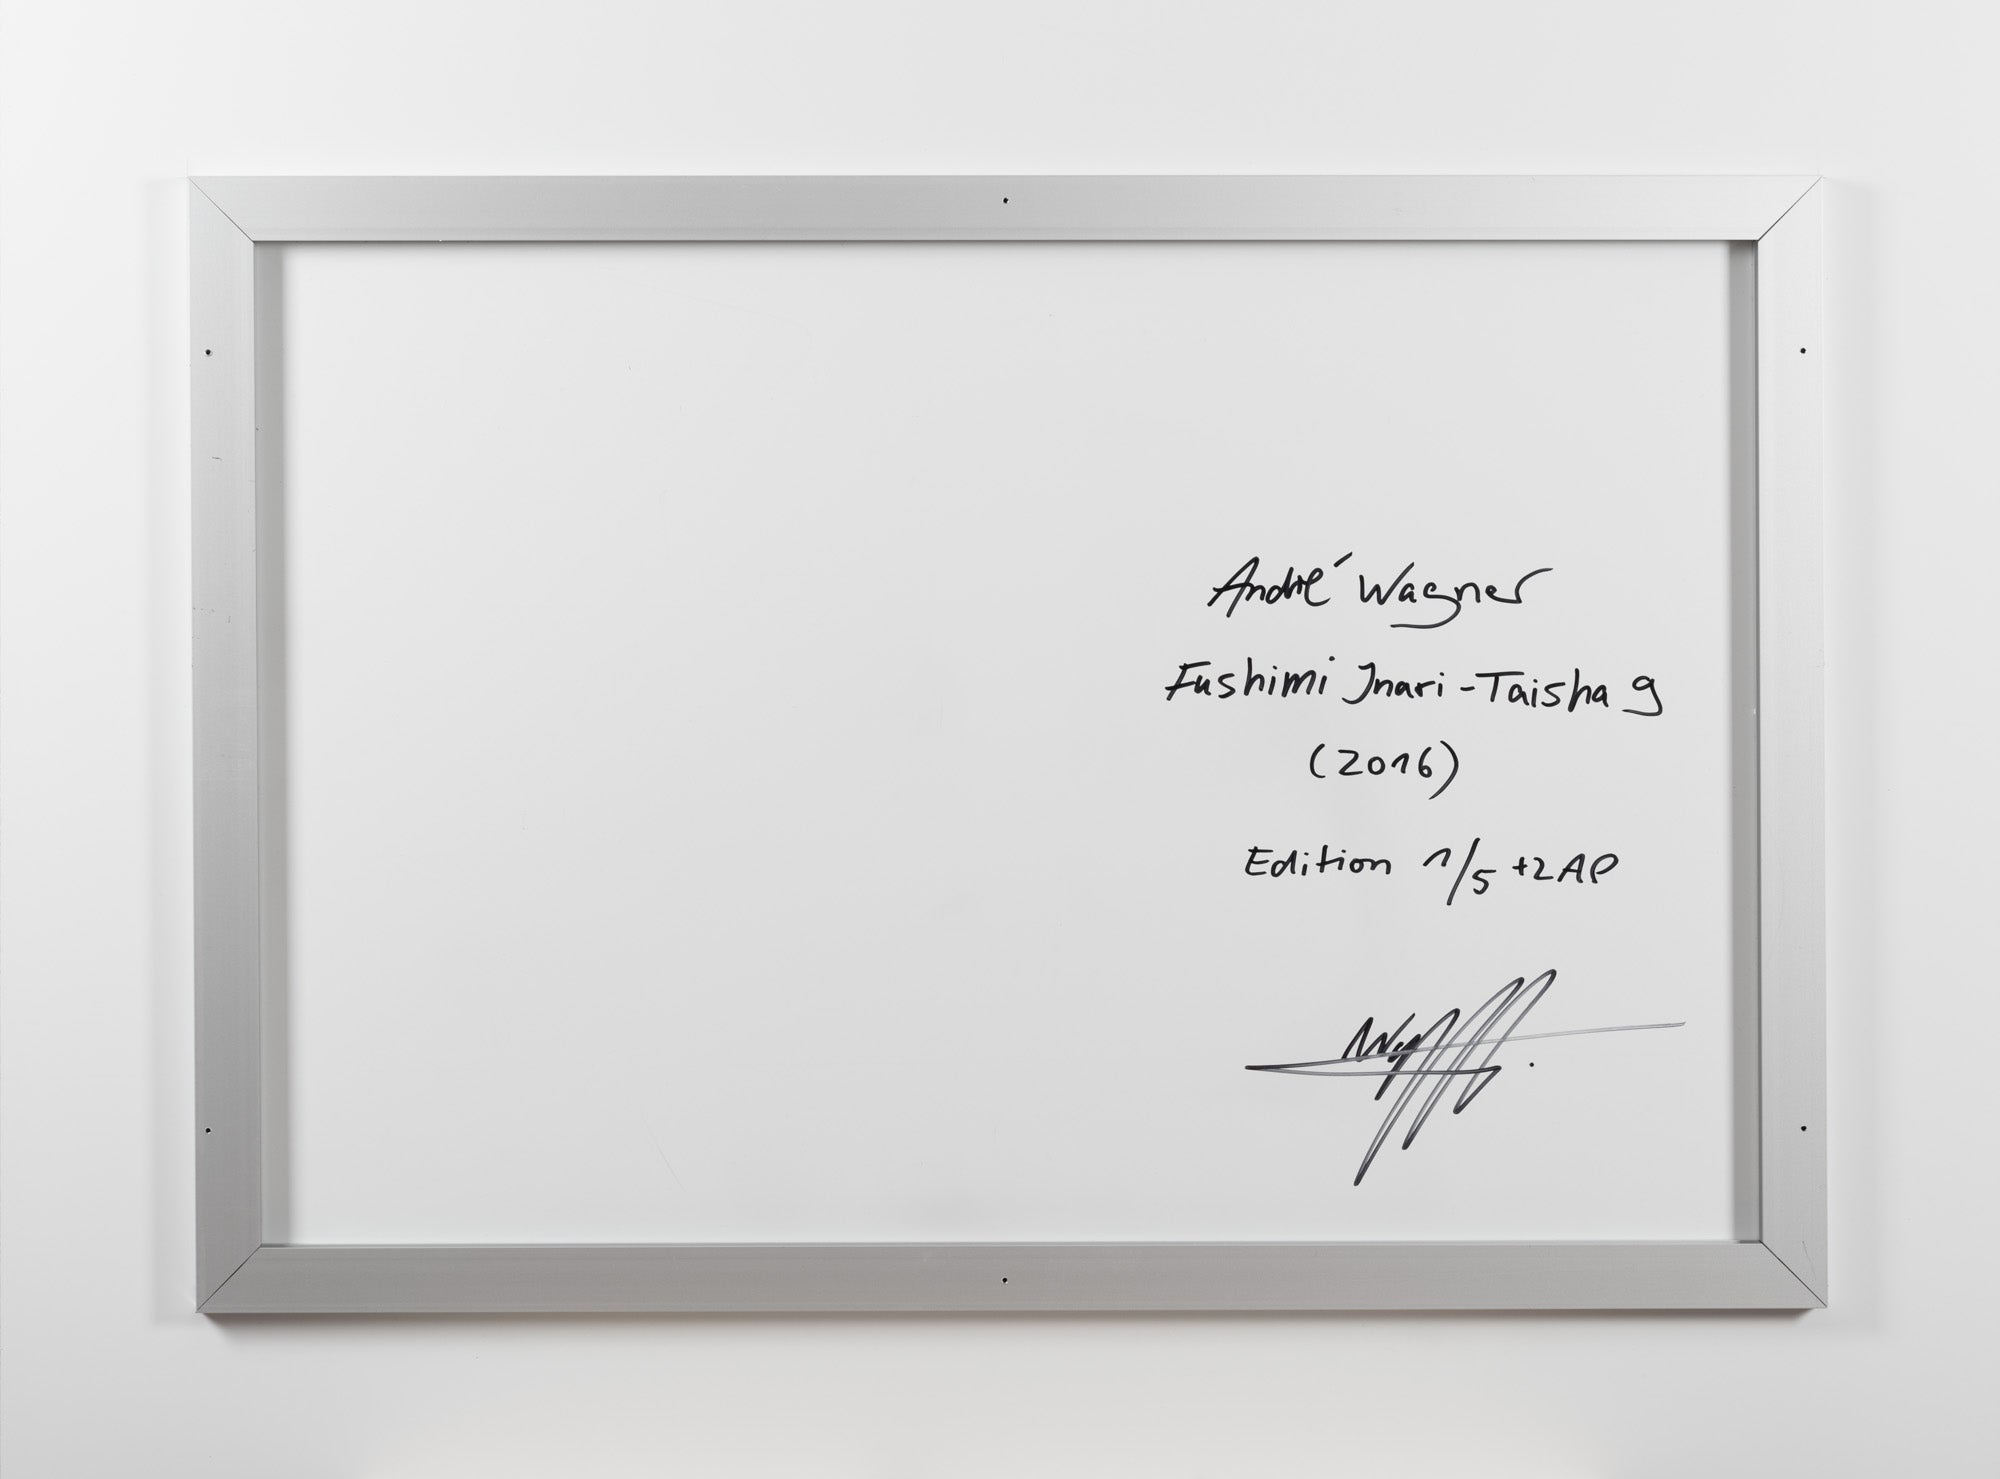 André Wagner
Fushimi Inari-Taisha 9
(2016)
Edition 1/5 +2AP